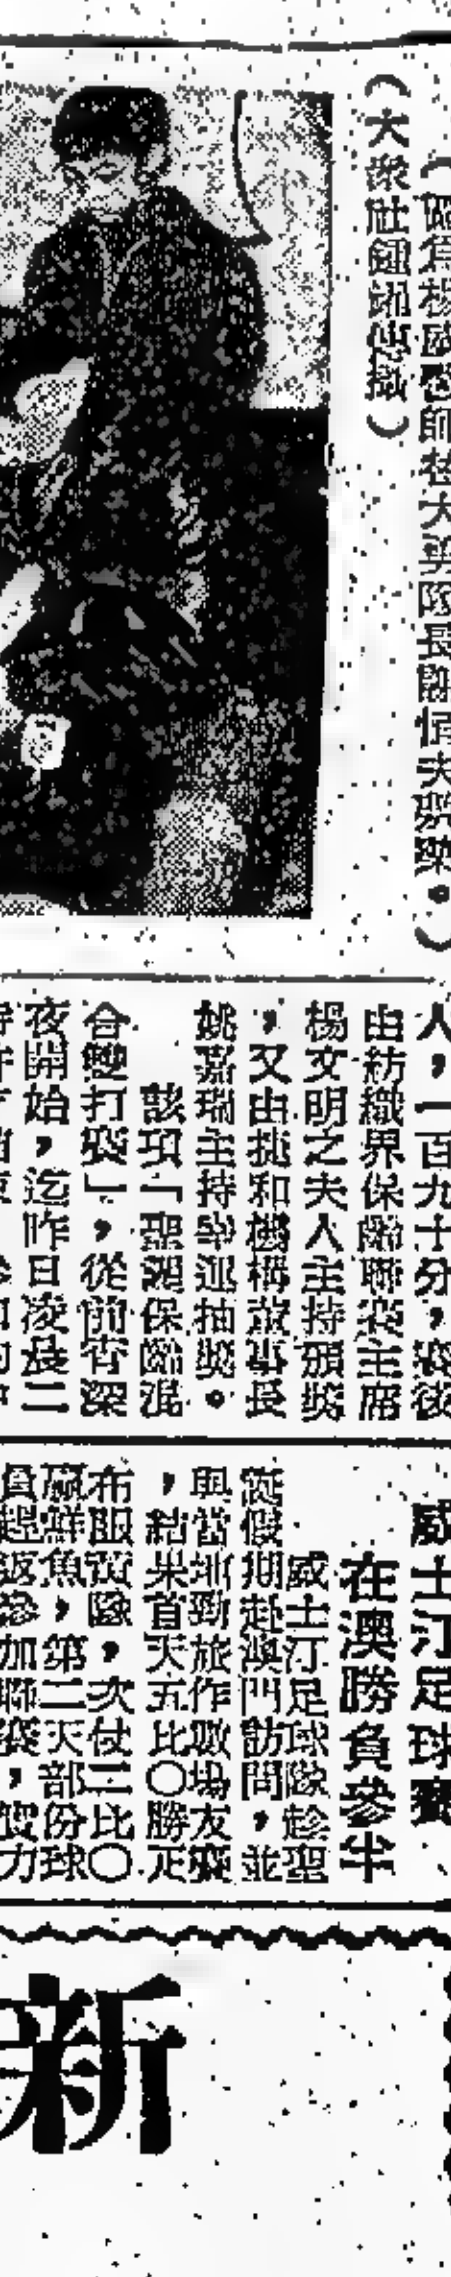 大善隊長
(大眾社鍾
人,一百九十分,賽後
由紡織界保齡聯賽主席
楊文明之夫人主持頒獎
,又由捷和機構董事長
姚嘉瑞主持幸運抽獎。
該項「聖誕保齡混
合雙打賽」,從前宵深
夜開始,迄昨日凌晨二
威士汀足球賽
在澳勝負參半
威士汀足球隊趁聖
誕假期赴澳門訪問,並
與當地勁旅作數場友賽
,結果首天五比〇勝疋
布服裝隊,次仗二比〇
贏鮮魚,第二天部份球
員趕返參加聯賽,實力
新